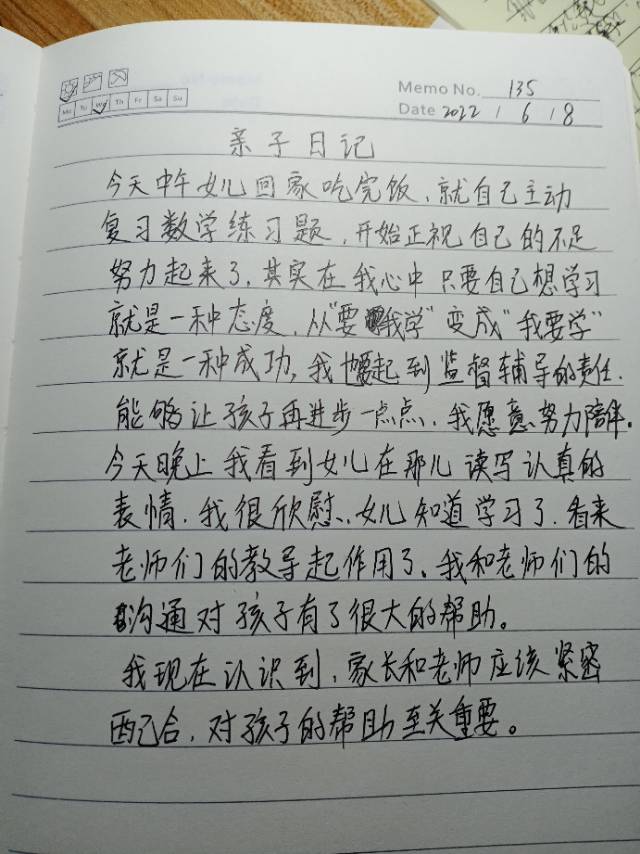 Mo Tu We Th Fr Sa Su
Memo No. 135
Date 2022 / 6 / 8
亲子日记
今天中午女儿回家吃完饭、就自己主动
复习数学练习题，开始正视自己的不足
努力起来了，其实在我心中只要自己想学习
就是一种态度，从“要我学”变成“我要学”
就是一种成功，我也要起到监督辅导的责任.
能够让孩子再进步一点点，我愿意努力陪伴。
今天晚上我看到女儿在那儿读写认真的
表情，我很欣慰..女儿知道学习了，看来
老师们的教导起作用了、我和老师们的
沟通对孩子有了很大的帮助。
我现在认识到，家长和老师应该紧密
配合，对孩子的帮助至关重要。